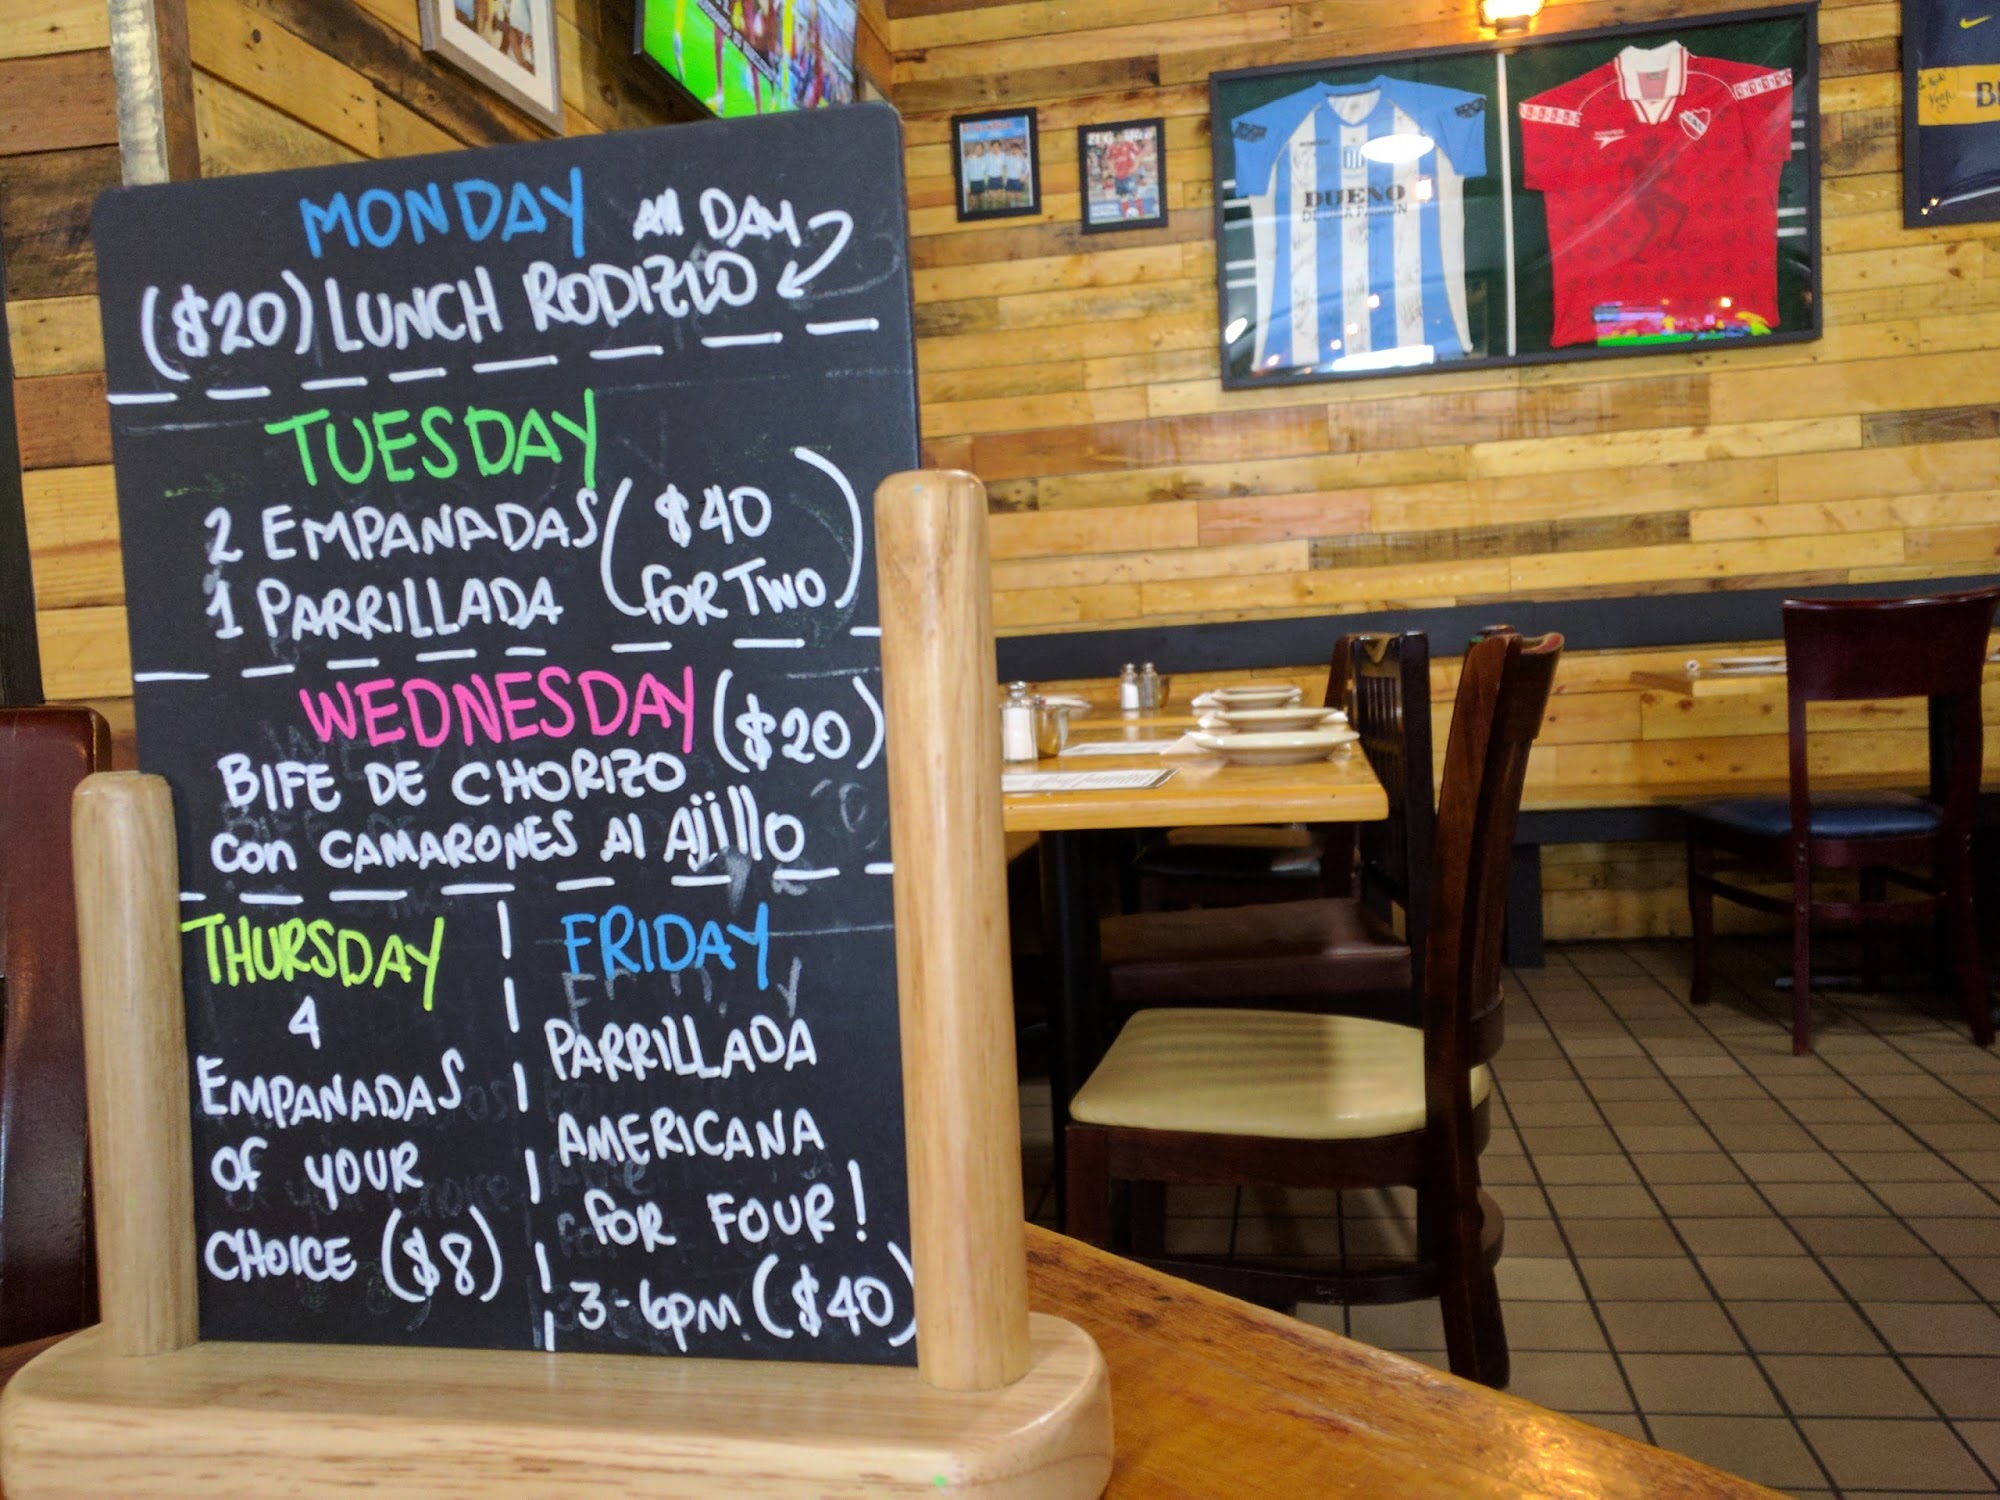 MONDAY All DAY
($20) LUNCH RODIZIO
TUESDAY
2 EMPANADAS ($40
1 PARRILLADA for Two)
WEDNESDAY ($20)
BIFE DE CHORIZO
con CAMARONES Al Ajillo
THURSDAY
4
EMPANADAS
of YOUR
CHOICE ($8)
FRIDAY
PARRILLADA
AMERICANA
foR FOUR!
3-6pm. ($40)
DUENO